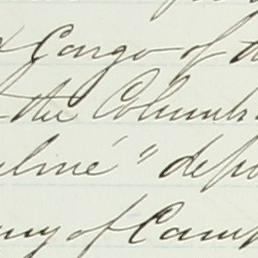 Cargo of th
the Columb
eliné" depo
my of Camp